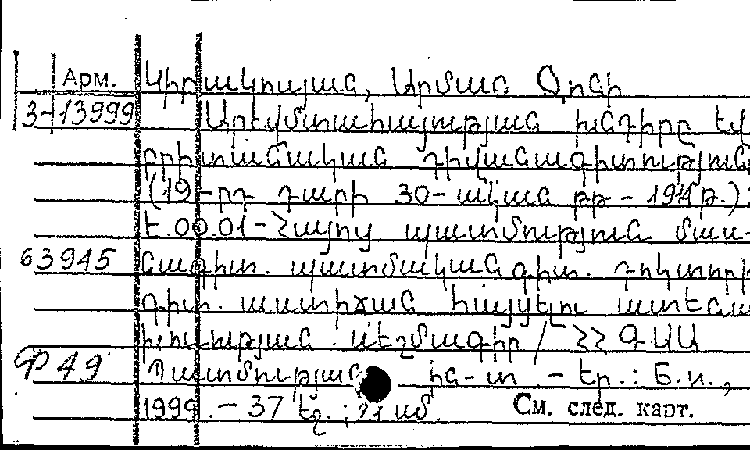 Арм. Կիրակոսյան, Արման Ջոնի
3-13999 Արևմտահայության խնդիրը եվ
բրիտանական դիվանագիտությունը
(19-րդ դարի 30-ական թթ - 1914թ.)
Է.00.01-Հայոց պատմություն մաս-
63945 նագիտ. պատմական գիտ. դոկտորի
գիտ. աստիճան հայցելու ատենա
խոսության սեղմագիր / ՀՀ ԳԱԱ
Ф 49 Պատմության ին-տ - Եր.: Б.и.,
1999.- 37 էջ.; 21 սմ. См. след. карт.